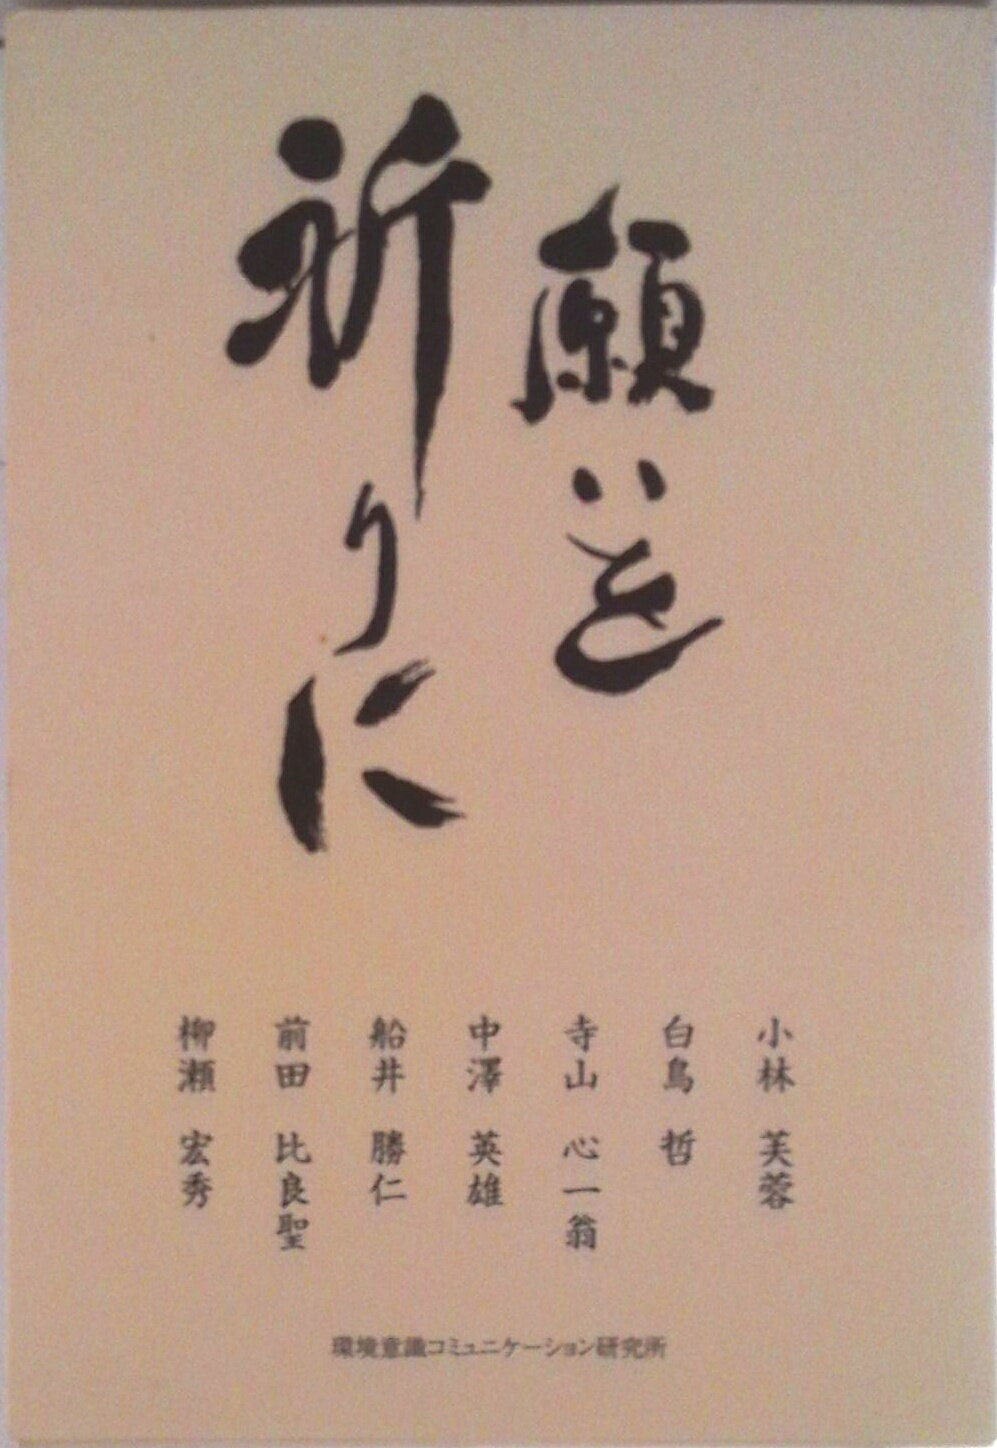 願いを
祈りに
小林 芙蓉
白鳥 哲
寺山 心一翁
中澤 英雄
船井 勝仁
前田 比良聖
柳瀬 宏秀
環境意識コミュニケーション研究所